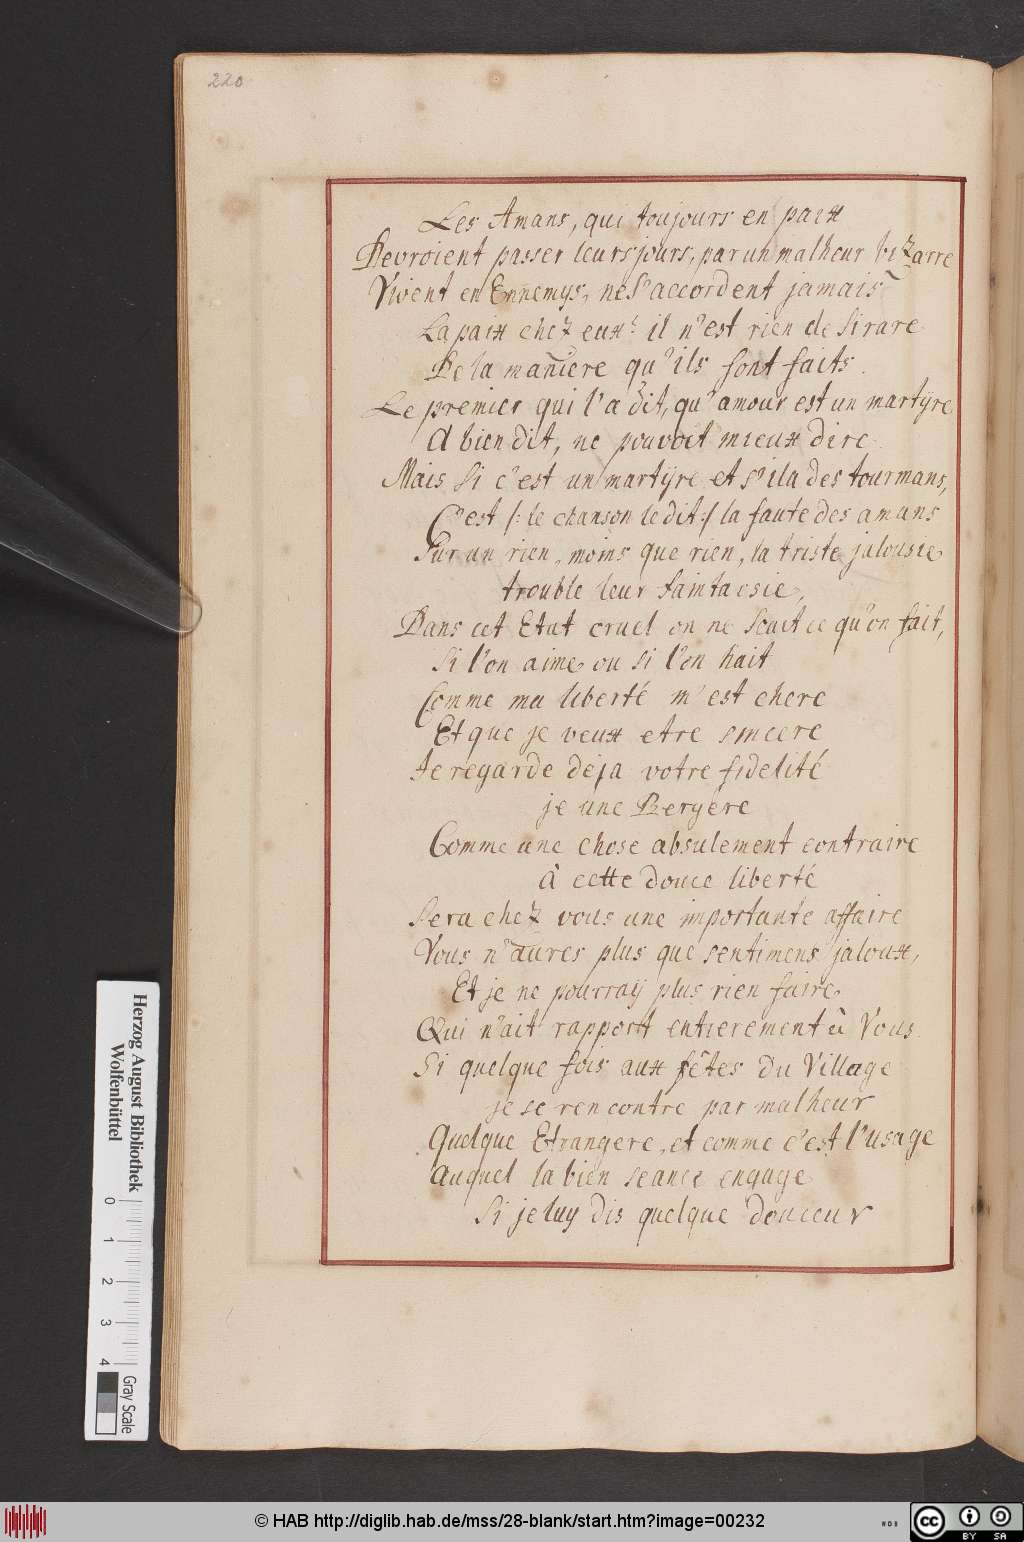 220
Les Amans, qui toujours en paix
Devroient passer leurs jours, par un malheur bizarre
Vivent en Ennemys, ne s'accordent jamais
La paix chez eux il n'est rien de si rare
De la maniere qu'ils sont faits.
Le premier qui l'a dit, qu'amour est un martÿre
A bien dit, ne pouvoit mieux dire.
Mais si c'est un martÿre et s'il a des tourmans,
C'est /: le chanson le dit :/ la faute des amans
Sur un rien, moins que rien, la triste jalousie
trouble leur faintaisie,
Dans cet Etat cruel on ne scait ce qu'on fait,
Si l'on aime ou si l'on hait
Comme ma liberté m'est chere
Et que je veux etre sincere
Je regarde deja votre fidelité
je une Bergere
Comme une chose absulement contraire
à cette douce liberté
Sera chez vous une importante affaire
Vous n'aures plus que sentimens jaloux,
Et je ne pourraij plus rien faire
Qui n'ait rapport entierement à Vous.
Si quelque fois aux fêtes du Village
je se rencontre par malheur
Quelque Etrangere, et comme c'est l'usage
Auquel la bien seance engage
Si je luy dis quelque douceur
Herzog August Bibliothek
Wolfenbüttel
0 1 2 3 4
Gray Scale
© HAB http://diglib.hab.de/mss/28-blank/start.htm?image=00232
WDB
cc BY SA